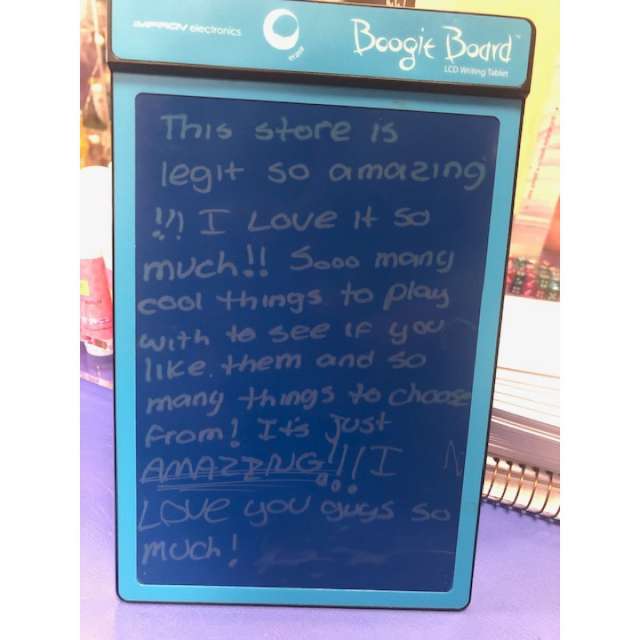 IMPROV electronics
erase
Boogie Board™
LCD Writing Tablet
This store is
legit so amazing
!!) I LOVE it so
much!! Sooo many
cool things to play
with to see if you
like them and so
many things to choose
from! It's just
AMAZZING!!! I N
LOVE you guys so
much!